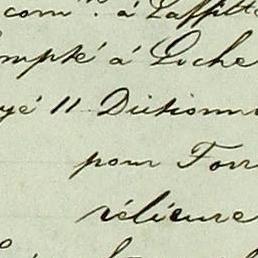 com.n à Laffitte
mpté à Loche
yé 11 Dictionn
pour Forr
rélieure